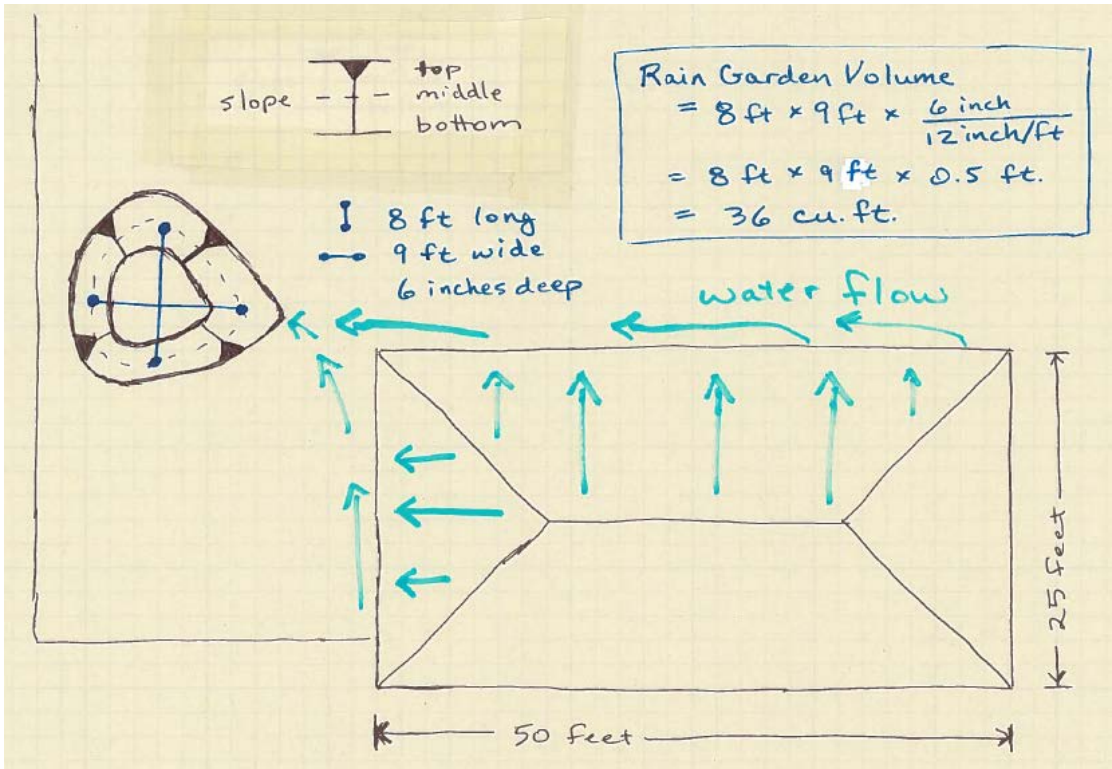 top
slope middle
bottom
Rain Garden Volume
= 8 ft × 9 ft × 6 inch
12 inch/ft
= 8 ft × 9 ft × 0.5 ft.
= 36 cu. ft.
8 ft long
9 ft wide
6 inches deep
water flow
25 feet
50 feet